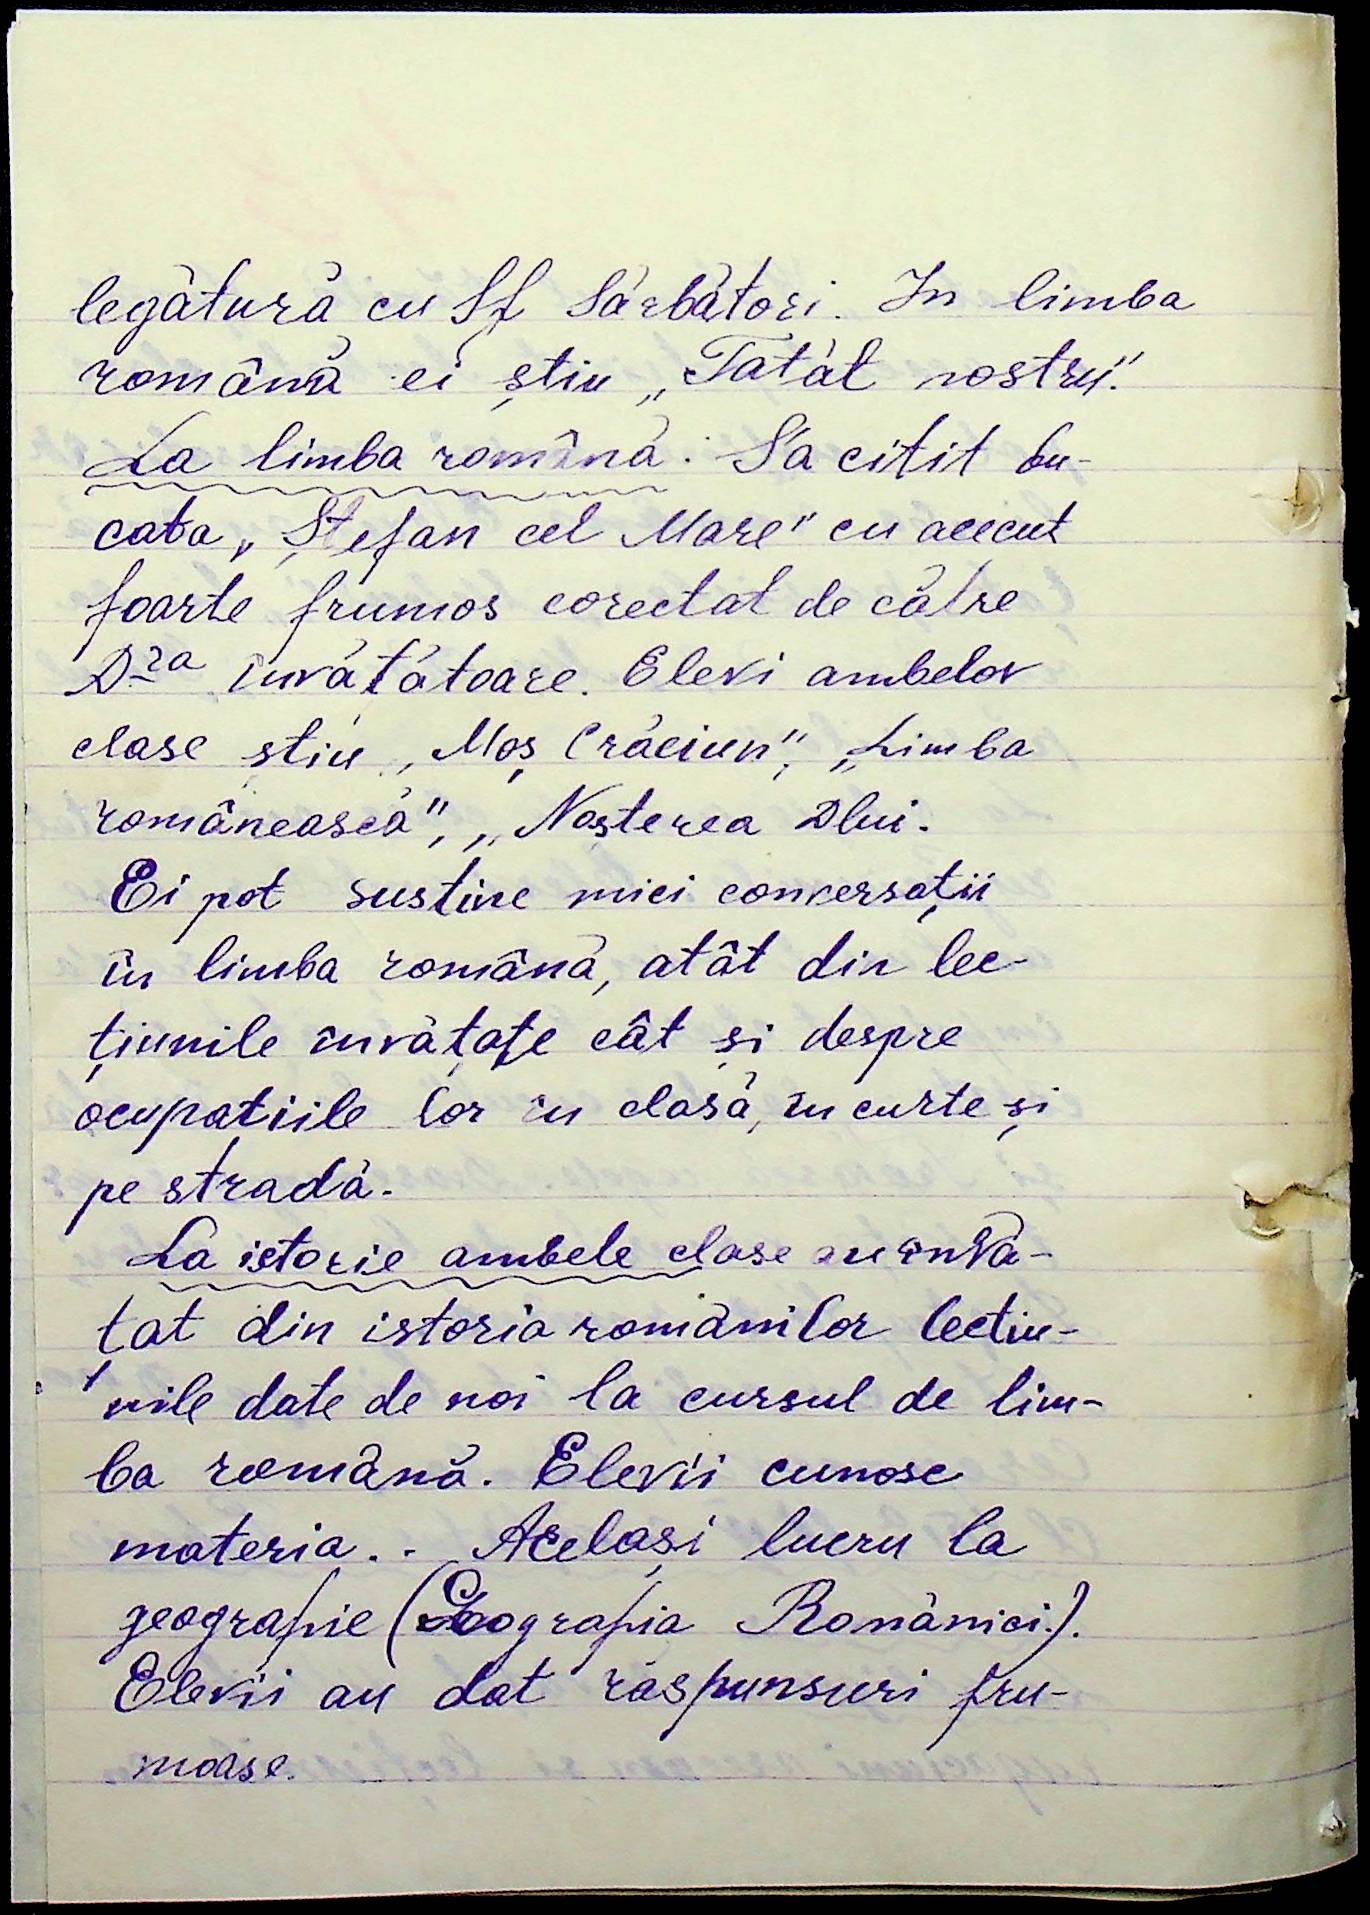 legătură cu Sf Sărbători. In limba
română ei știu „Tatăl nostru".
La limba română. S'a citit bu-
cata „Ștefan cel Mare" cu acecut
foarte frumos corectat de către
D-ra învățătoare. Elevi ambelor
clase știu „Moș Crăciun", „Limba
românească", „Nașterea Dlui.
Ei pot sustine mici conversații
în limba română, atât din lec-
țiunile învățate cât și despre
ocupatiile lor în clasă, în curte și
pe stradă.
La istorie ambele clase au învă-
țat din istoria românilor lectiu-
nile date de noi la cursul de lim-
ba română. Elevii cunosc
materia.. Același lucru la
geografie (Geografia României).
Elevii au dat răspunsuri fru-
moase.